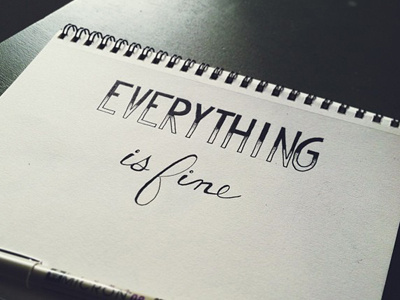 EVERYTHING
is fine